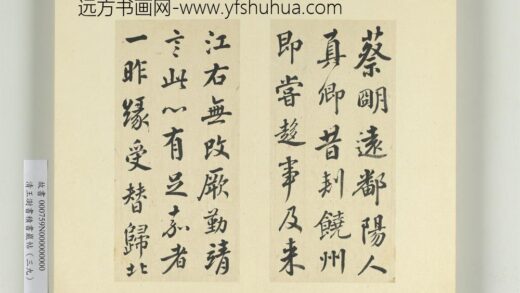 远方书画网-www.yfshuhua.com
蔡明遠鄱陽人
真卿昔刺饒州
即嘗趍事及来
江右無改厥勤靖
言此心有足嘉者
一昨緣受替歸北
故書000759N000000000
清王澍書積書巖帖(三九)